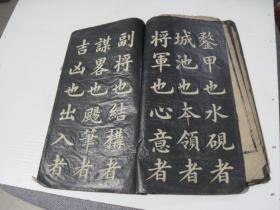 鍪甲也水硯者
城池也夲領者
將軍也心意者
副將也結構者
謀畧也颺筆者
吉凶也出入者